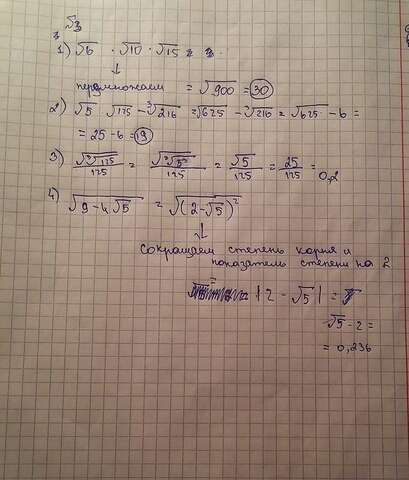 √3
1) √6 · √10 · √15 = 
↓
перемножаем = √900 = 30
2) √5 · √125 - ³√216 = √625 - ³√216 = √625 - 6 =
= 25 - 6 = 19
3) √³√125 / 125 = √³√5³ / 125 = √5 / 125 = 25 / 125 = 0,2
4) √9 - 4√5 = √(2 - √5)²
↓
сокращаем степень корня и
показатель степени на 2
= |2 - √5| =
√5 - 2 =
= 0,236